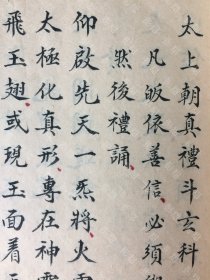 太上朝真禮斗玄科
凡皈依善信必須
然後禮誦
仰啟先天一炁將火
太極化真形專在神
飛玉翅或現玉面着